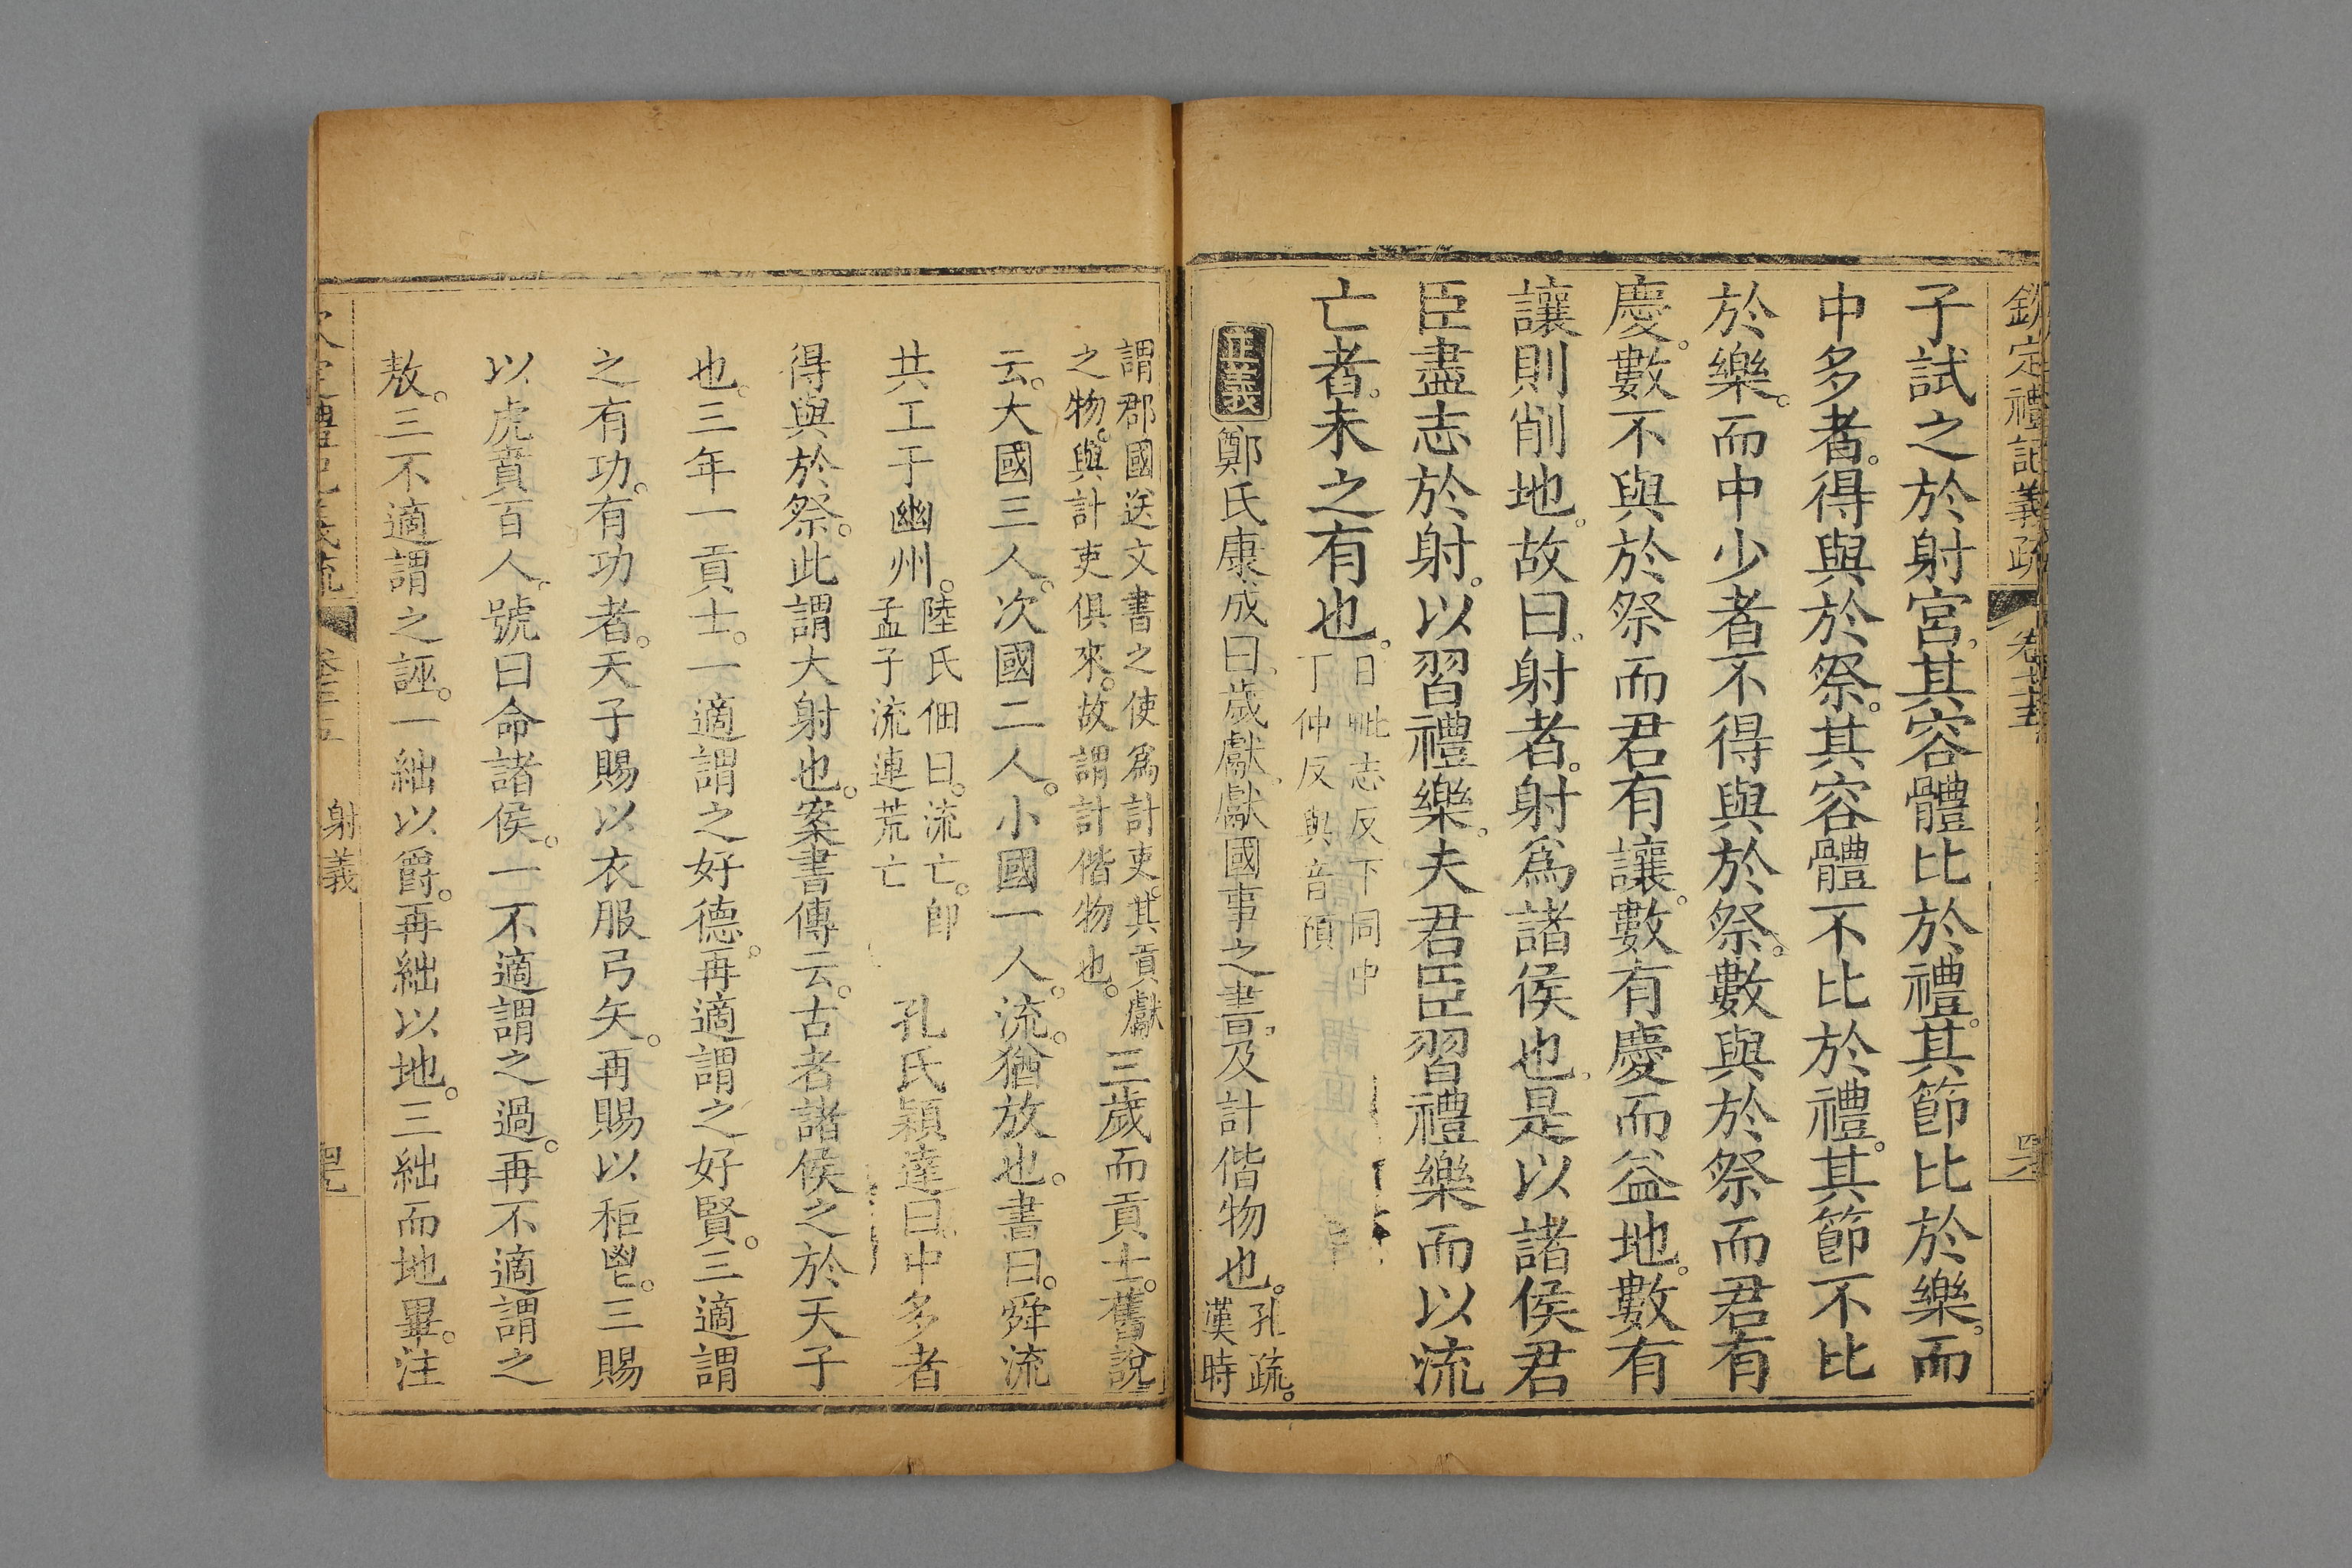 欽定禮記義疏 卷七十五
子試之於射宮。其容體比於禮。其節比於樂。而
中多者。得與於祭。其容體不比於禮。其節不比
於樂。而中少者。不得與於祭。數與於祭而君有
慶。數不與於祭而君有讓。數有慶而益地。數有
讓則削地。故曰。射者。射爲諸侯也。是以諸侯君
臣盡志於射。以習禮樂。夫君臣習禮樂而以流
亡者。未之有也。
比毗志反下同中
丁仲反與音預
正義 鄭氏康成曰。歲獻。獻國事之書。及計偕物也。
孔疏。
漢時
謂郡國送文書之使爲計吏。其貢獻
之物。與計吏俱來。故謂計偕物也。
三歲而貢士。舊說
云。大國三人。次國二人。小國一人。流。猶放也。書曰。舜流
共工于幽州。
陸氏佃曰。流亡。卽
孟子流連荒亡
孔氏穎達曰。中多者
得與於祭。此謂大射也。案書傳云。古者諸侯之於天子
也。三年一貢士。一適謂之好德。再適謂之好賢。三適謂
之有功。有功者。天子賜以衣服弓矢。再賜以秬鬯。三賜
以虎賁百人。號曰命諸侯。一不適謂之過。再不適謂之
敖。三不適謂之誣。一絀以爵。再絀以地。三絀而地畢。注
射義